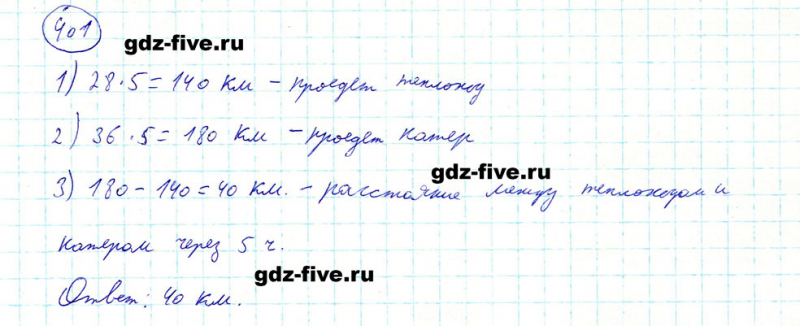 401
gdz-five.ru
1) 28·5=140 км – проедет теплоход
2) 36·5=180 км – проедет катер
gdz-five.ru
3) 180-140=40 км. – расстояние между теплоходом и
катером через 5 ч.
gdz-five.ru
Ответ: 40 км.